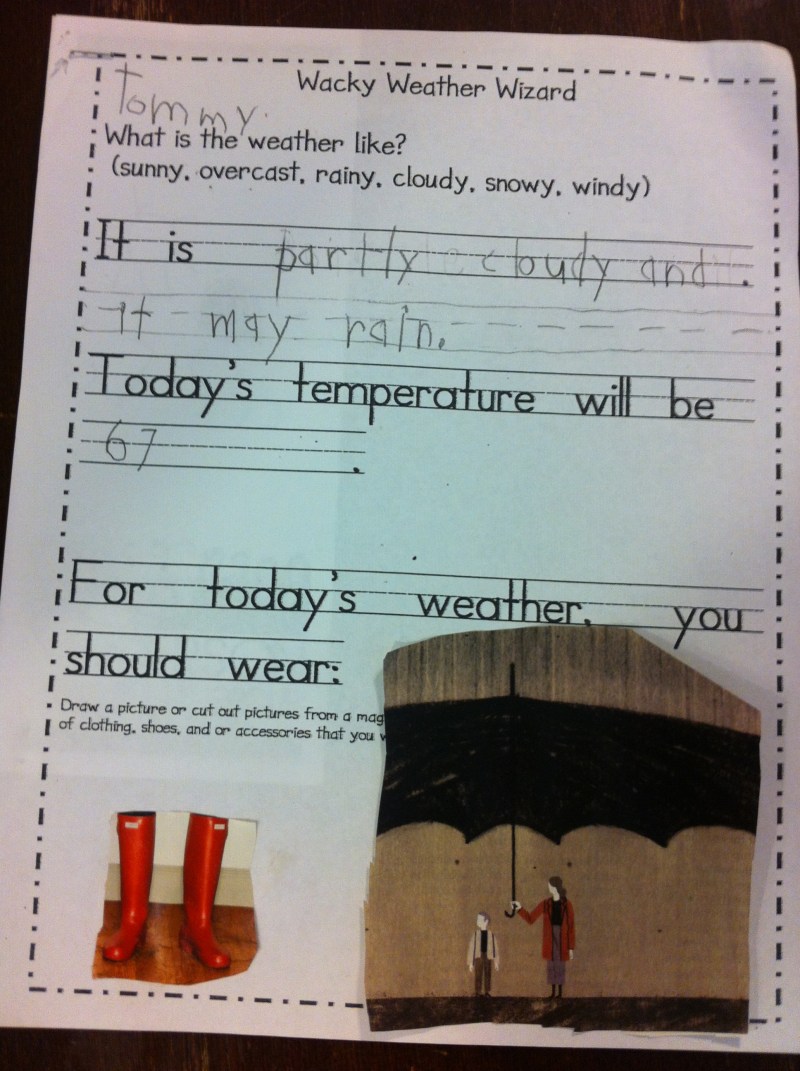 Wacky Weather Wizard
Tommy
What is the weather like?
(sunny, overcast, rainy, cloudy, snowy, windy)
It is partly cloudy and .
it may rain.
Today's temperature will be
67 .
For today's weather, you
should wear:
Draw a picture or cut out pictures from a mag
of clothing, shoes, and or accessories that you w